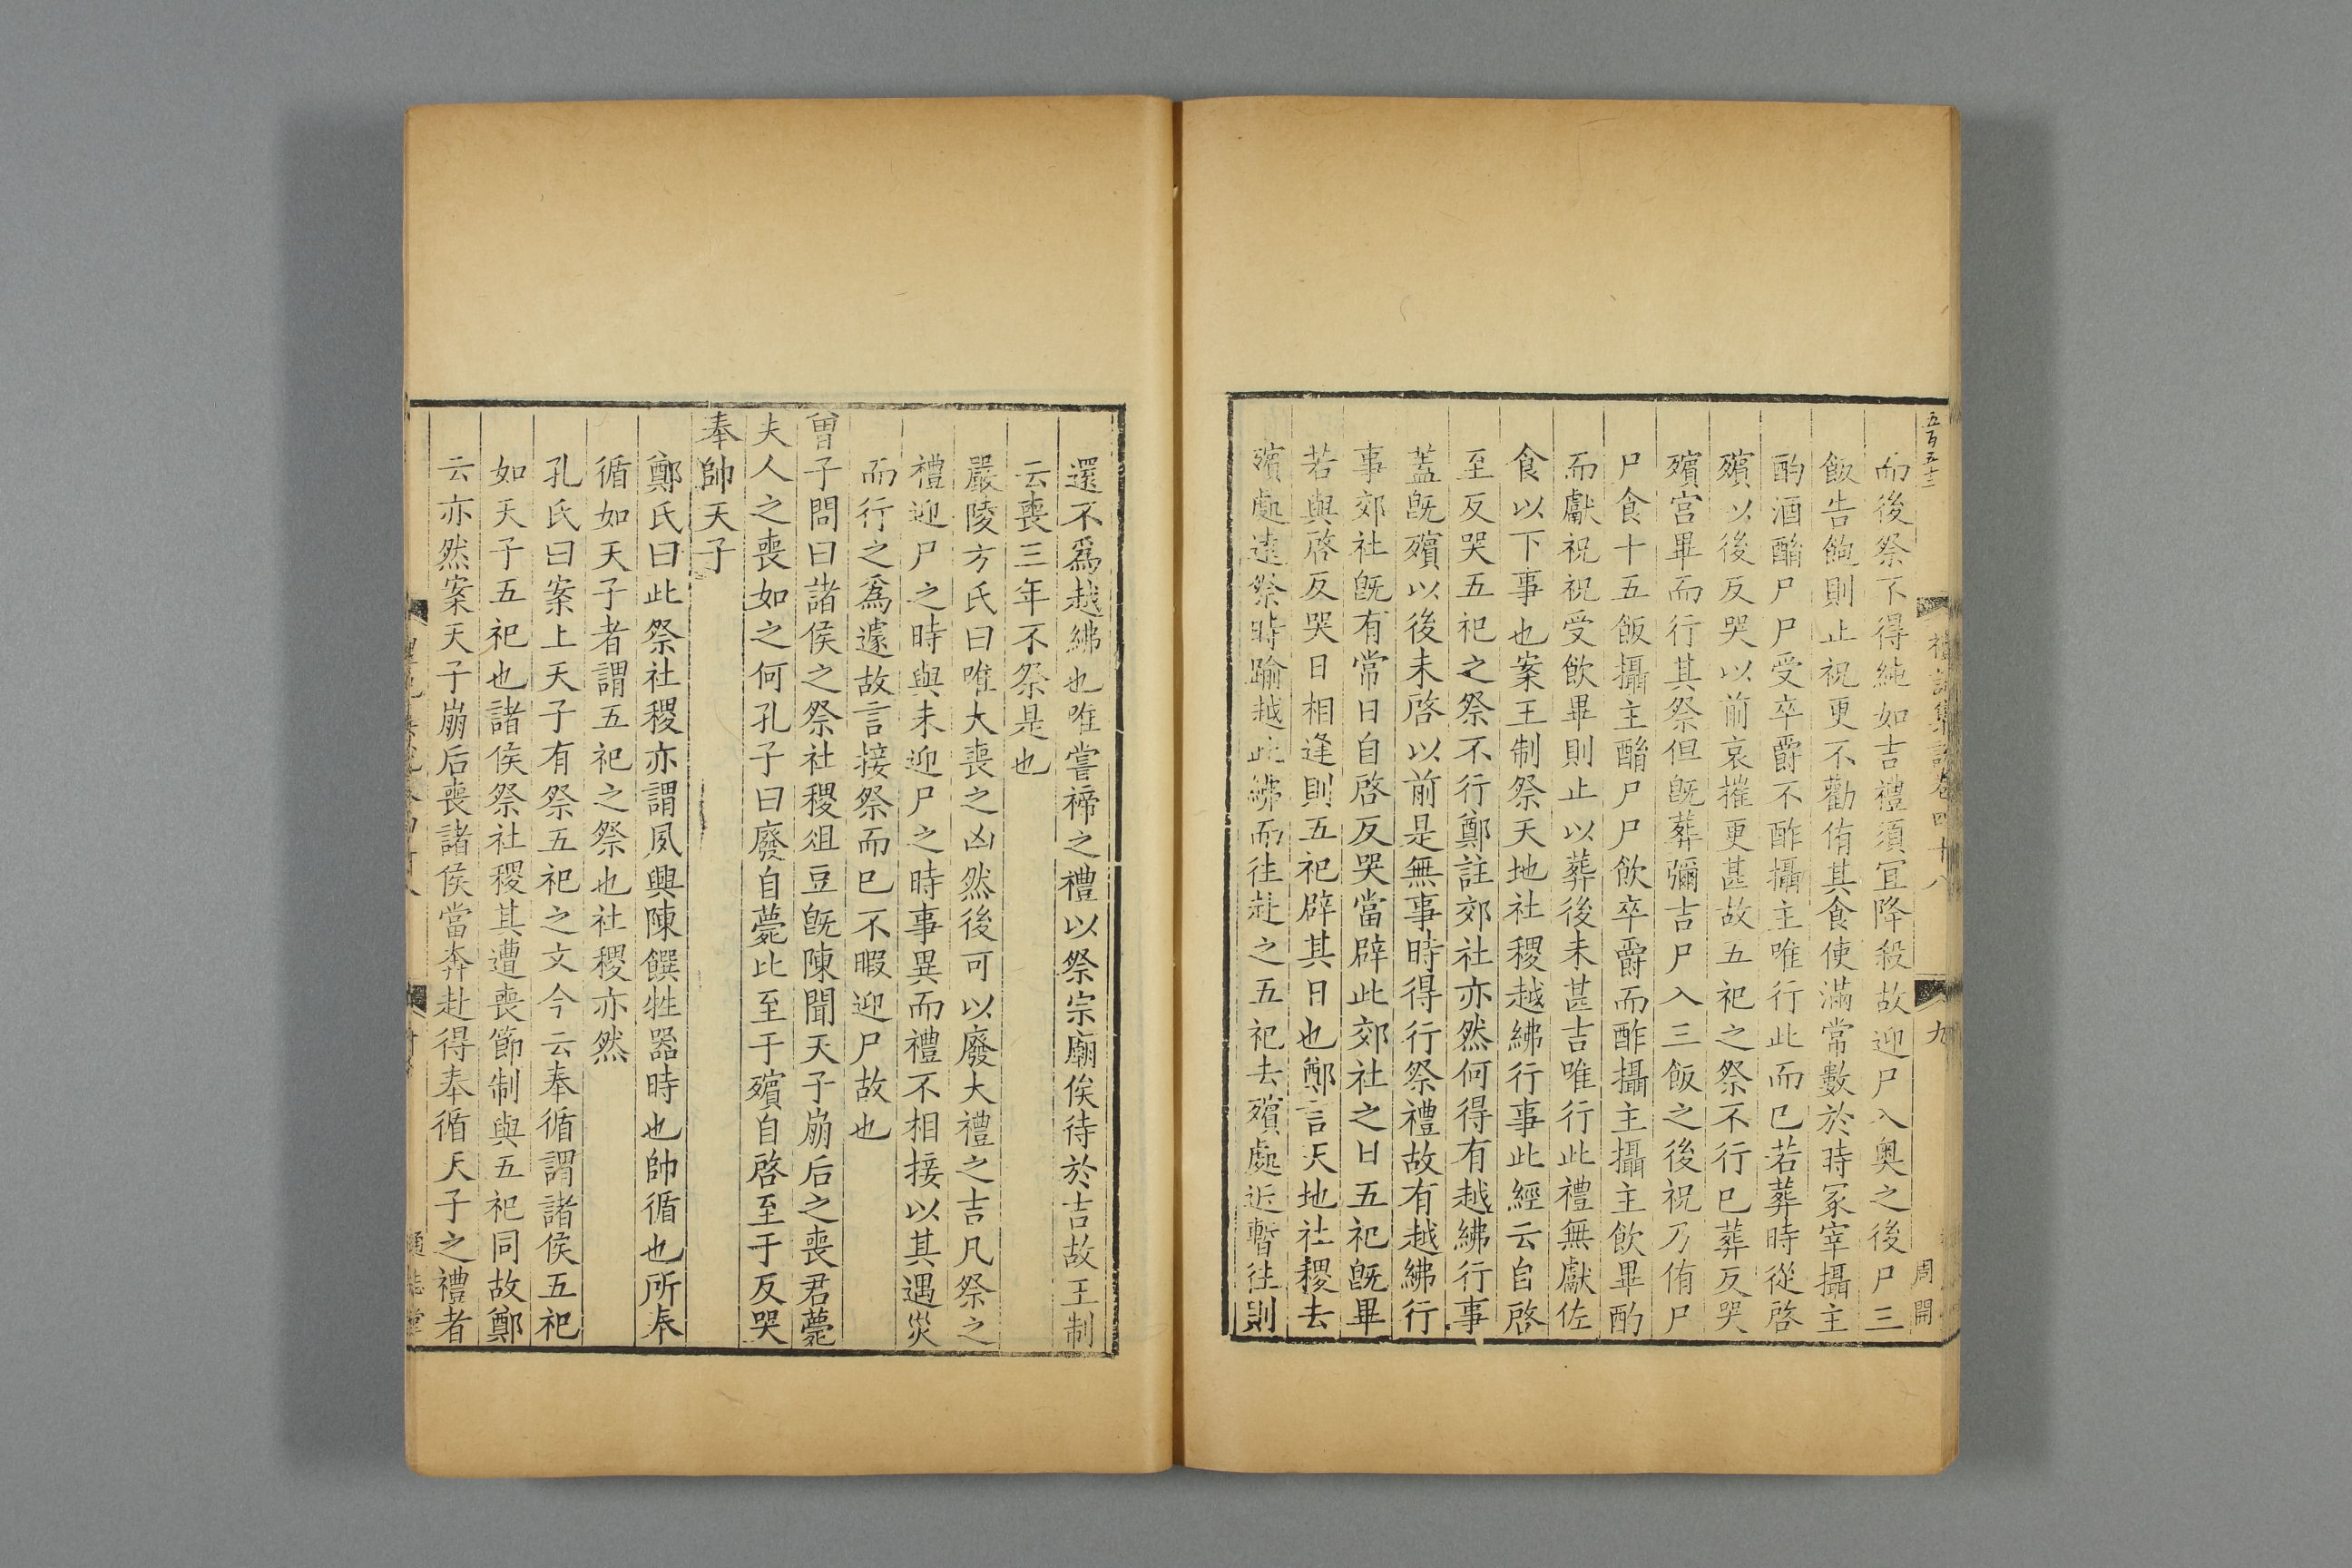 五百五十三
禮記集說卷四十八
九
周開
而後祭不得純如吉禮須宜降殺故迎尸入奥之後尸三
飯告飽則止祝更不勸侑其食使滿常數於時冢宰攝主
酌酒酳尸尸受卒爵不酢攝主唯行此而已若葬時從啓
殯以後反哭以前哀摧更甚故五祀之祭不行已葬反哭
殯宫畢而行其祭但旣葬彌吉尸入三飯之後祝乃侑尸
尸食十五飯攝主酳尸尸飲卒爵而酢攝主攝主飲畢酌
而獻祝祝受飲畢則止以葬後未甚吉唯行此禮無獻佐
食以下事也案王制祭天地社稷越紼行事此經云自啓
至反哭五祀之祭不行鄭註郊社亦然何得有越紼行事
蓋旣殯以後未啓以前是無事時得行祭禮故有越紼行
事郊社旣有常日自啓反哭當辟此郊社之日五祀旣畢
若與啓反哭日相逢則五祀辟其日也鄭言天地社稷去
殯處遠祭時踰越此紼而往赴之五祀去殯處近暫往則
還不爲越紼也唯嘗禘之禮以祭宗廟俟待於吉故王制
云喪三年不祭是也
嚴陵方氏曰唯大喪之凶然後可以廢大禮之吉凡祭之
禮迎尸之時與未迎尸之時事異而禮不相接以其遇災
而行之爲遽故言接祭而已不暇迎尸故也
曾子問曰諸侯之祭社稷俎豆旣陳聞天子崩后之喪君薨
夫人之喪如之何孔子曰廢自薨比至于殯自啓至于反哭
奉帥天子
鄭氏曰此祭社稷亦謂夙興陳饌牲器時也帥循也所奉
循如天子者謂五祀之祭也社稷亦然
孔氏曰案上天子有祭五祀之文今云奉循謂諸侯五祀
如天子五祀也諸侯祭社稷其遭喪節制與五祀同故鄭
云亦然案天子崩后喪諸侯當奔赴得奉循天子之禮者
通志堂